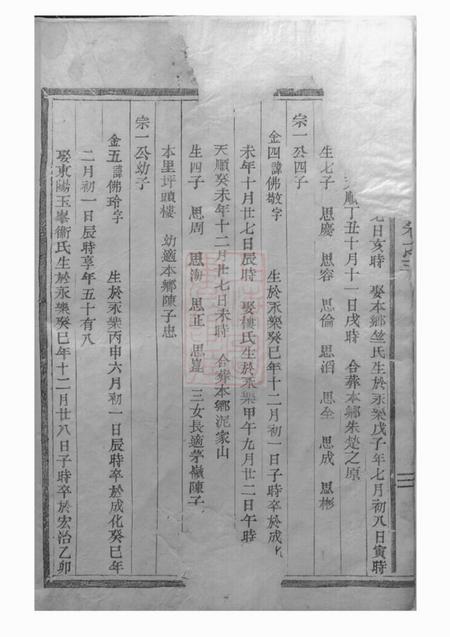 日亥時 娶本鄉竺氏生於永樂戊子年七月初八日寅時
順丁丑十月十一日戌時 合葬本鄉朱夌之原
生七子 思慶 思容 思倫 思滔 思全 思成 思彬
宗一公四子
金四諱佛敬字 生於永樂癸巳年十二月初一日子時卒於成化
未年十月廿七日辰時 娶樓氏生於永樂甲午九月廿二日午時
天順癸未年十二月廿七日未時 合葬本鄉泥家山
生四子 思周 思海 思正 思崑 三女長適茅嶺陳子
本里坪頭樓 幼適本鄉陳子忠
宗一公幼子
金五諱佛琀字 生於永樂丙申六月初一日辰時卒於成化癸巳年
二月初一日辰時享年五十有八
娶東陽玉峯衛氏生於永樂癸巳年十二月廿八日子時卒於宏治乙卯